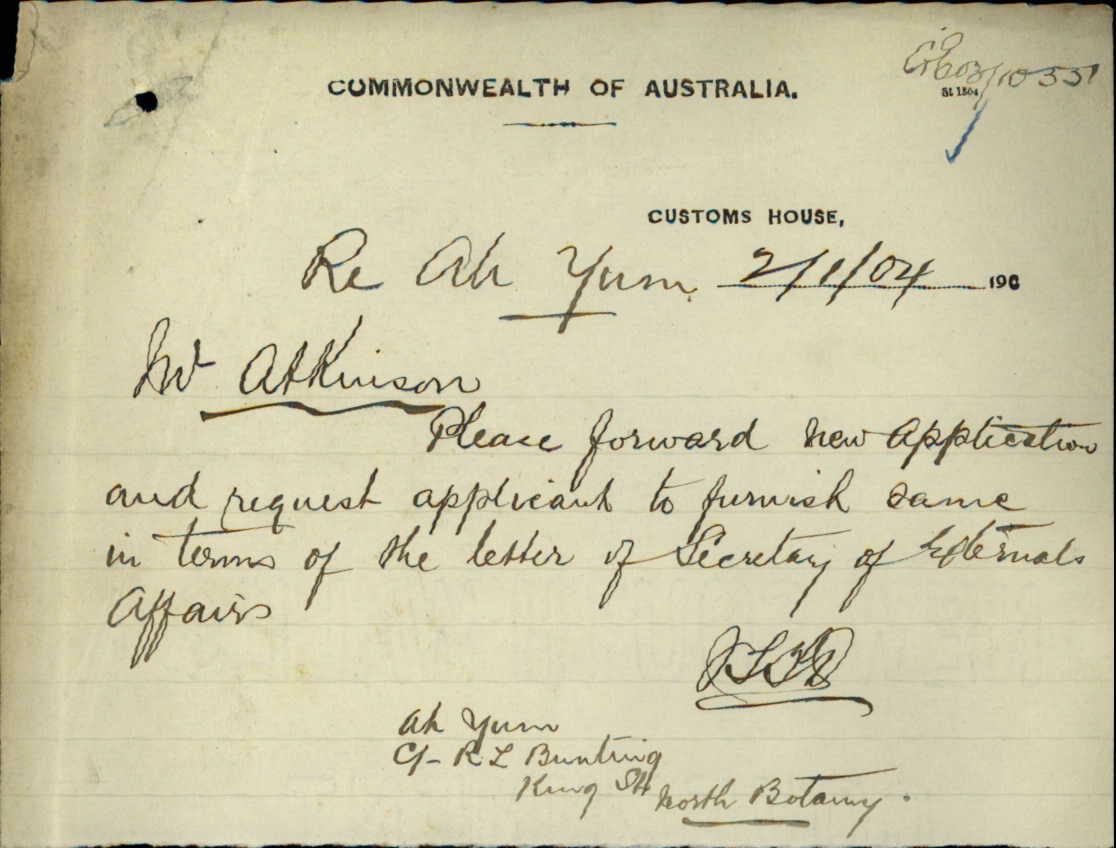 COMMONWEALTH OF AUSTRALIA.
03/10551
St 1504
CUSTOMS HOUSE,
Re Ah Yum 2/1/04 190
Mr Atkinson
Please forward new application
and request applicant to furnish same
in terms of the letter of Secretary of Externals
Affairs
Ah Yum
C/- R L Bunting
King St North Botany.